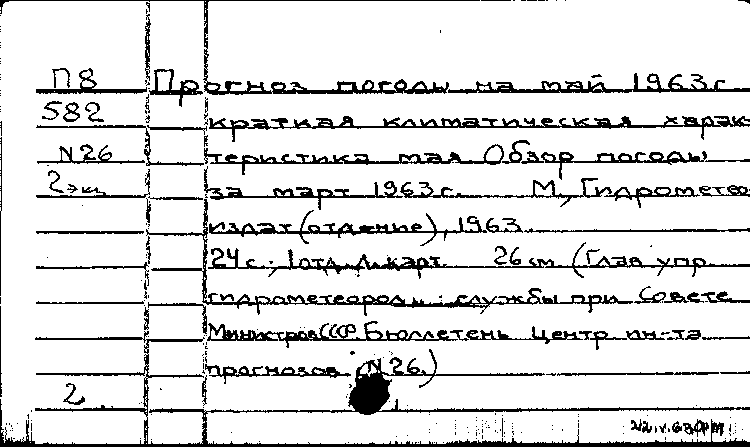 П8 Прогноз погоды на май 1963 г
582 краткая климатическая харак-
N26 теристика мая. Обзор погоды
2 экц за март 1963 г. М., Гидрометео-
издат (отд-ние), 1963.
24 с.; 1 отд. л. карт. 26 см (Глав упр
гидрометеоролог. службы при Совете
Министров СССР. Бюллетень Центр ин-та
прогнозов (N 26.)
2